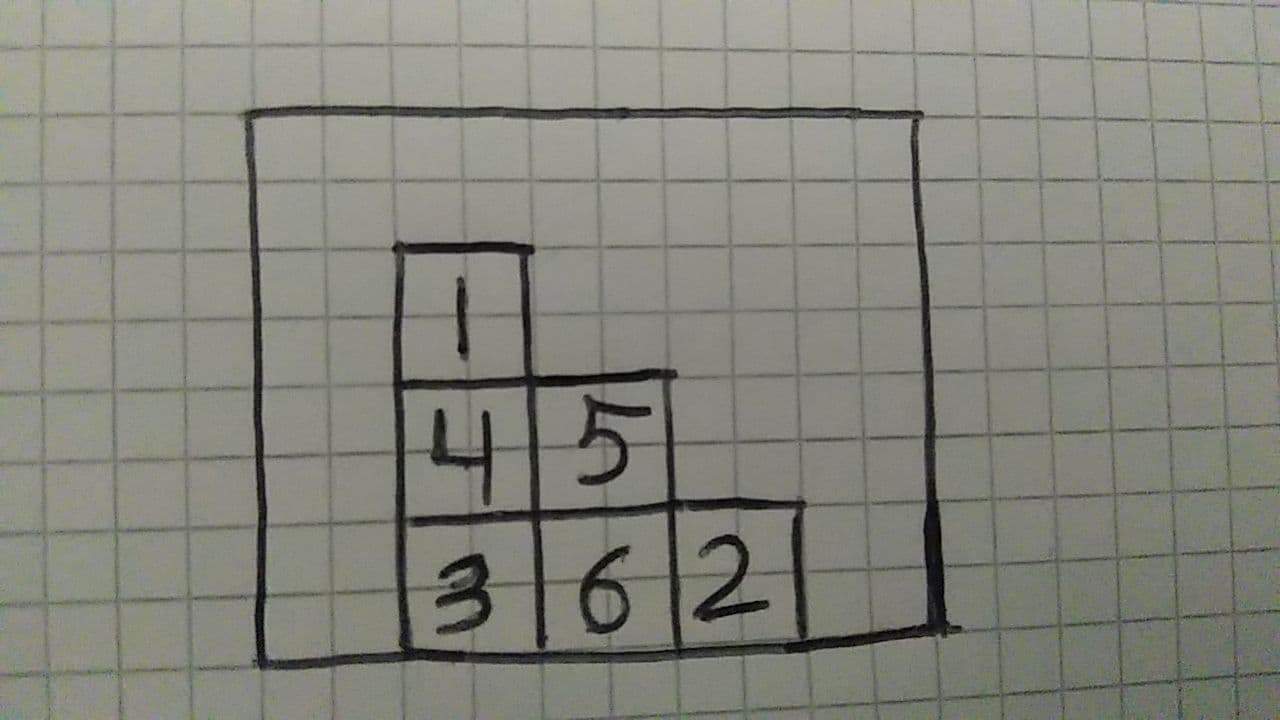 1
4 5
3 6 2